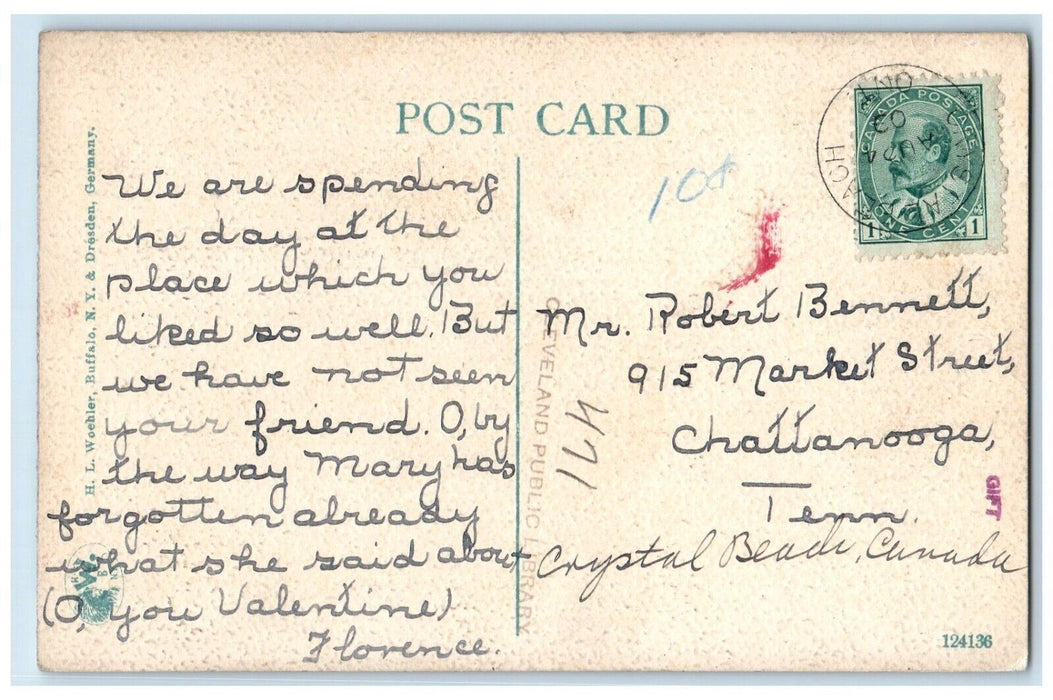 POST CARD
H. L. Woehler, Buffalo, N. Y. & Dresden, Germany.
We are spending
the day at the
place which you
liked so well. But
we have not seen
your friend. O, by
the way Mary has
forgotten already
what she said about
(O, you Valentine)
Florence.
CLEVELAND PUBLIC LIBRARY
471
10¢
CANADA POSTAGE
ONE CENT
1 1
ONT
AU 24
09
BEACH
Mr. Robert Bennett,
915 Market Street,
Chattanooga,
Tenn.
GIFT
Crystal Beach, Canada
124136